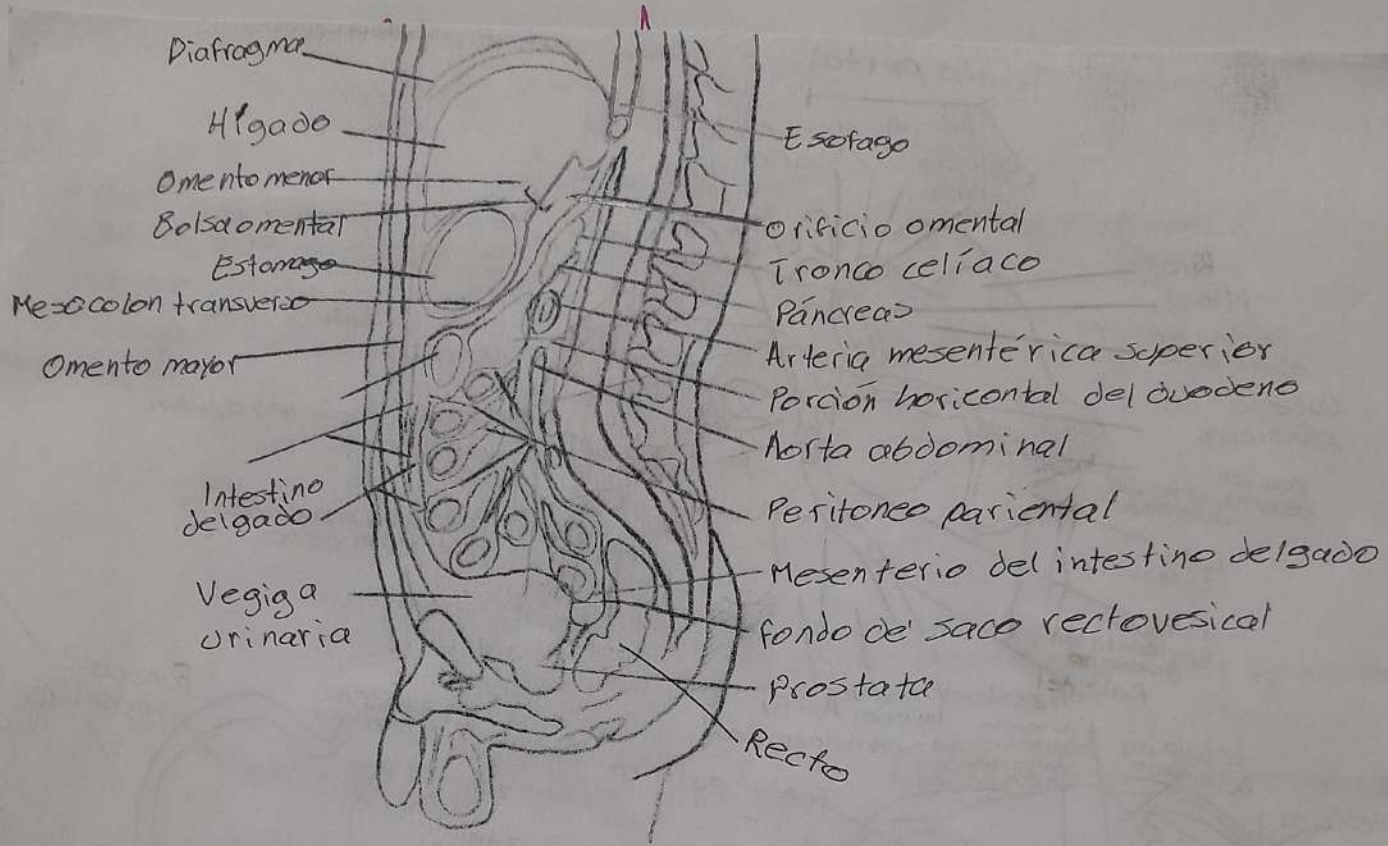 Diafragma
Hígado
Omento menor
Bolsa omental
Estomago
Mesocolon transverso
Omento mayor
Intestino
delgado
Vegiga
urinaria
Esofago
Orificio omental
Tronco celíaco
Páncreas
Arteria mesentérica superior
Porción horicontal del duodeno
Aorta abdominal
Peritoneo pariental
Mesenterio del intestino delgado
fondo de saco rectovesical
Prostata
Recto